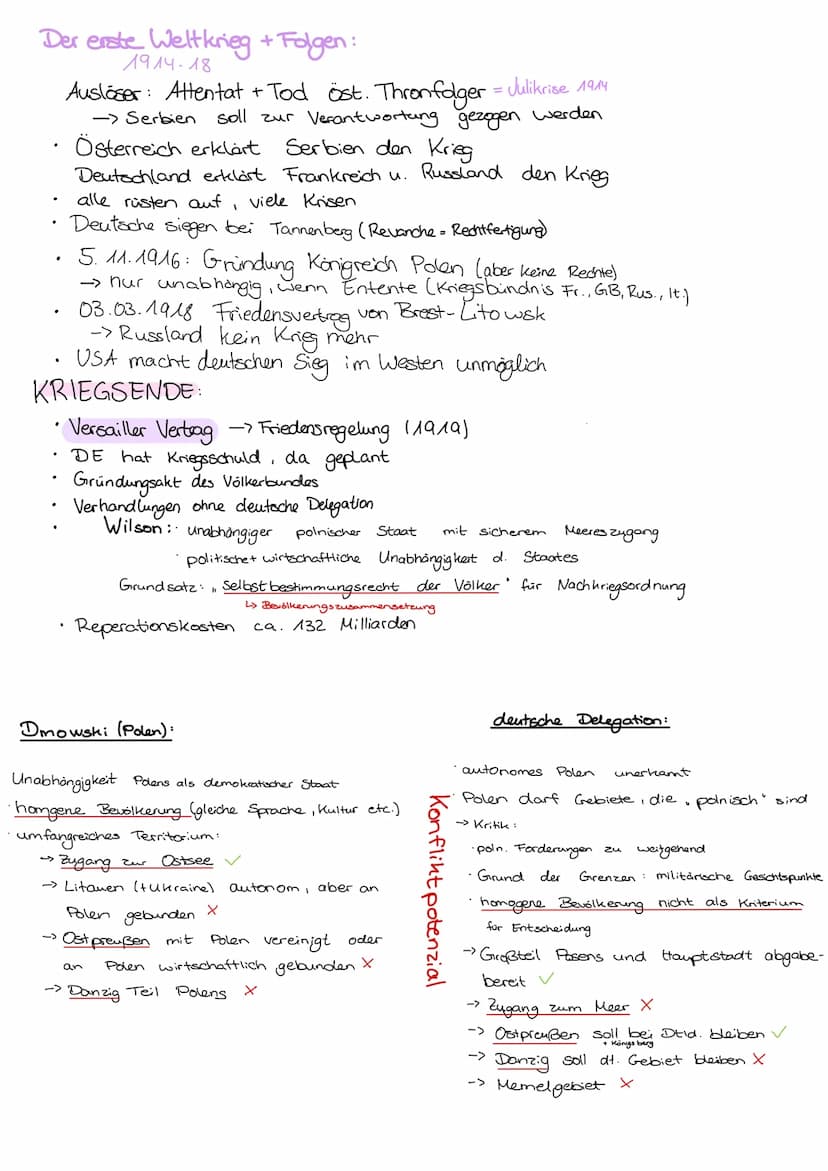 Der erste Weltkrieg + Folgen:
1914-18
Auslöser: Attentat + Tod öst. Thronfolger = Julikrise 1914
-> Serbien soll zur Verantwortung gezogen werden
· Österreich erklärt Serbien den Krieg
Deutschland erklärt Frankreich u. Russland den Krieg
· alle rüsten auf, viele Krisen
· Deutsche siegen bei Tannenberg (Revanche = Rechtfertigung)
· 5.11.1916: Gründung Königreich Polen (aber keine Rechte)
-> nur unabhängig, wenn Entente (Kriegsbündnis Fr., GB, Rus., It.)
· 03.03.1918 Friedensvertrag von Brest-Litowsk
-> Russland kein Krieg mehr
· USA macht deutschen Sieg im Westen unmöglich
KRIEGSENDE:
· Versailler Vertrag -> Friedensregelung (1919)
· DE hat Kriegsschuld, da geplant
· Gründungsakt des Völkerbundes
· Verhandlungen ohne deutsche Delegation
· Wilson: · unabhängiger polnischer Staat mit sicherem Meereszugang
· politische + wirtschaftliche Unabhängigkeit d. Staates
Grundsatz: „Selbstbestimmungsrecht der Völker" für Nachkriegsordnung
↳ Bevölkerungszusammensetzung
· Reperationskosten ca. 132 Milliarden
Dmowski (Polen):
Unabhängigkeit Polens als demokratischer Staat
· homgene Bevölkerung (gleiche Sprache, Kultur etc.)
· umfangreiches Territorium:
-> Zugang zur Ostsee ✓
-> Litauen (+ Ukraine) autonom, aber an
Polen gebunden X
-> Ostpreußen mit Polen vereinigt oder
an Polen wirtschaftlich gebunden X
-> Danzig Teil Polens X
Konfliktpotenzial
deutsche Delegation:
· autonomes Polen anerkannt
· Polen darf Gebiete, die „polnisch" sind
-> Kritik:
· poln. Forderungen zu weitgehend
· Grund der Grenzen: militärische Gesichtspunkte
· homogene Bevölkerung nicht als Kriterium
für Entscheidung
-> Großteil Posens und Hauptstadt abgabe-
bereit ✓
-> Zugang zum Meer X
-> Ostpreußen soll bei Dtld. bleiben ✓
+ Königsberg
-> Danzig soll dt. Gebiet bleiben X
-> Memelgebiet X